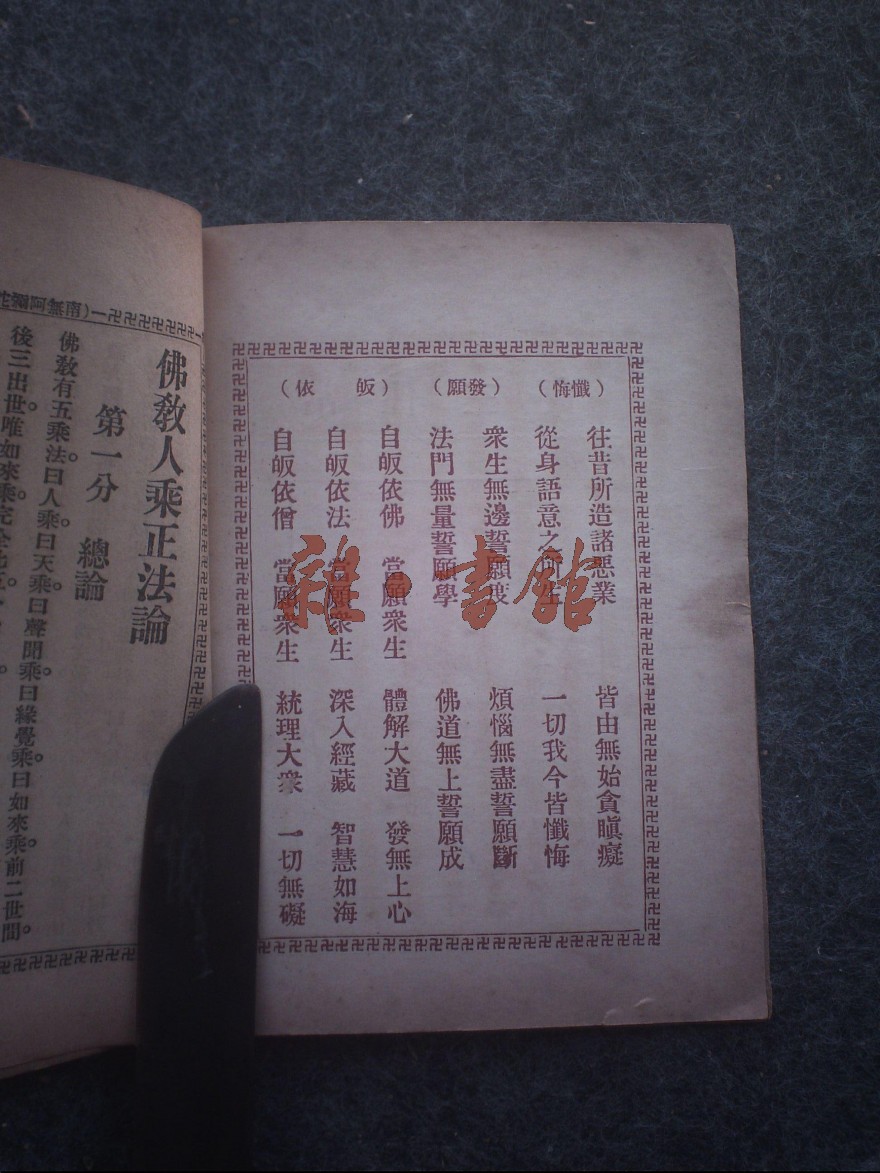 （懺悔）
往昔所造諸惡業　皆由無始貪瞋癡
從身語意之所生　一切我今皆懺悔
（發願）
衆生無邊誓願度　煩惱無盡誓願斷
法門無量誓願學　佛道無上誓願成
（皈依）
自皈依佛　當願衆生　體解大道　發無上心
自皈依法　當願衆生　深入經藏　智慧如海
自皈依僧　當願衆生　統理大衆　一切無礙
雜·書館
一（南無阿彌陀
佛教人乘正法論
第一分　總論
佛教有五乘法。曰人乘。曰天乘。曰聲聞乘。曰緣覺乘。曰如來乘。前二世間。
後三出世。唯如來乘完全